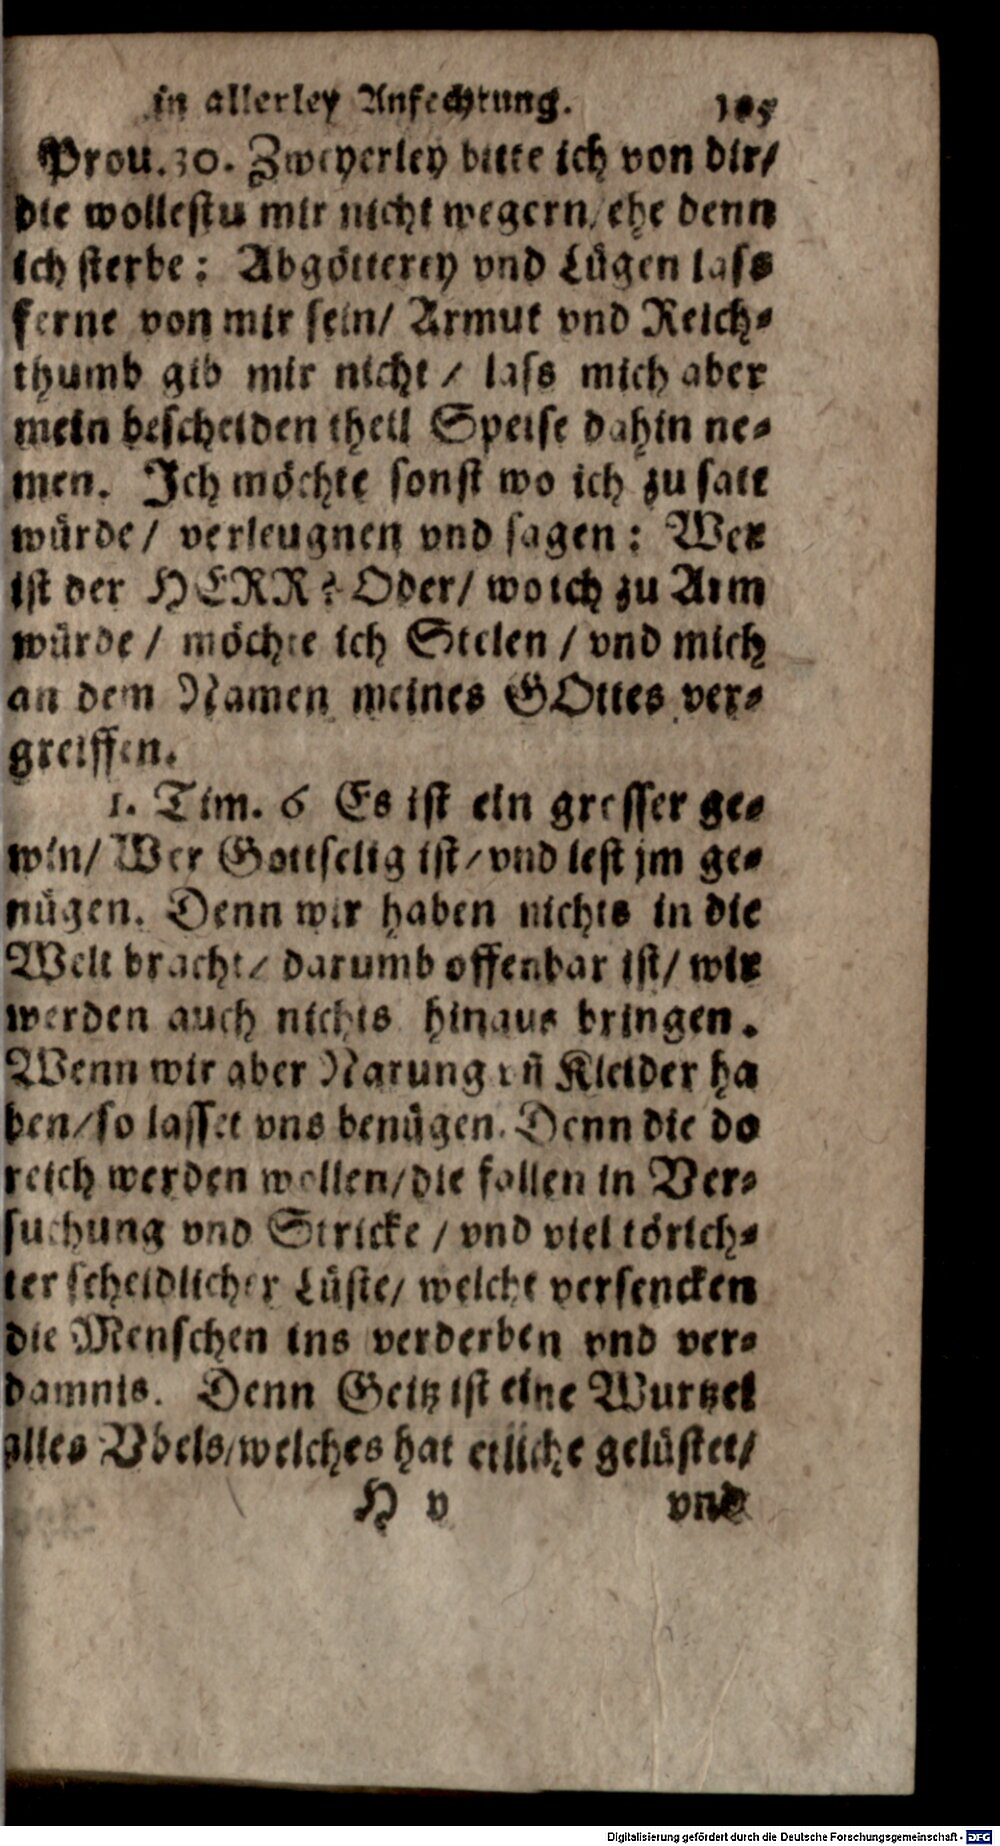 in allerley Anfechtung. 105
Prou. 30. Zweyerley bitte ich von dir/
die wollestu mir nicht wegern/ ehe denn
ich sterbe: Abgötterey vnd Lügen lass
ferne von mir sein/ Armut vnd Reich-
thumb gib mir nicht / lass mich aber
mein bescheiden theil Speise dahin ne-
men. Ich möchte sonst wo ich zu satt
würde/ verleugnen vnd sagen: Wer
ist der HERR? Oder/ wo ich zu Arm
würde/ möchte ich Stelen / vnd mich
an dem Namen meines GOttes ver-
greiffen.
1. Tim. 6 Es ist ein grosser ge-
win/ Wer Gottselig ist/ vnd lest jm ge-
nügen. Denn wir haben nichts in die
Welt bracht/ darumb offenbar ist/ wir
werden auch nichts hinaus bringen.
Wenn wir aber Narung vñ Kleider ha
ben/ so lasset vns benügen. Denn die do
reich werden wollen/ die fallen in Ver-
suchung vnd Stricke / vnd viel törich-
ter scheidlicher Lüste/ welche versencken
die Menschen ins verderben vnd ver-
damnis. Denn Geitz ist eine Wurtzel
alles Vbels/ welches hat etliche gelüstet/
H v vnd
Digitalisierung gefördert durch die Deutsche Forschungsgemeinschaft - DFG